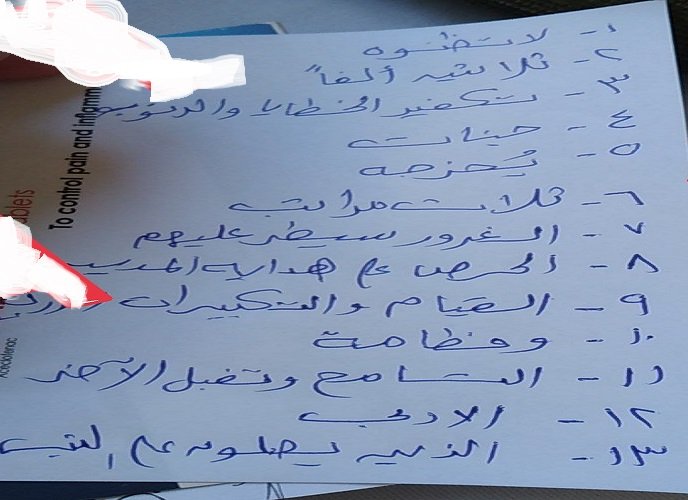 ١- لا تظنوه
٢- ثلاثين ألفاً
٣- تكفير الخطايا والذنوب
٤- حينات
٥- يُحزنه
٦- ثلاث مراتب
٧- الغرور سيطر عليهم
٨- الحرص على هداية
٩- الصيام والتكبيرات
١٠- وفظامة
١١- التسامح وتقبل الآخر
١٢- الادبي
١٣- الذين يصلون على النبي
To control pain and inflamm
ablets
Aceclofenac